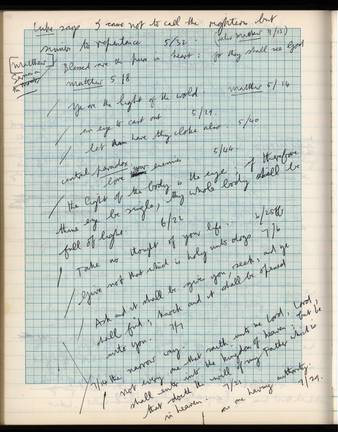 Luke says I came not to call the righteous but
sinners to repentance 5/32. (like Matthew 9/13)
Matthew
Sermon on
the Mount
Blessed are the pure in heart: for they shall see God
Matthew 5/8
Ye are the light of the world Matthew 5/14
an eye to cast out 5/29.
let him have thy cloke also. 5/40
central paradox
love your enemies 5/44.
the light of the body is the eye: if therefore
thine eye be single, thy whole body shall be
full of light. 6/22
Take no thought of your life. 6/25ff
Give not that which is holy unto dogs 7/6
Ask and it shall be given you, seek, and ye
shall find, knock and it shall be opened
unto you. 7/7
7/14 the narrow way.
not every one that saith unto me Lord, Lord,
shall enter into the kingdom of heaven; but he
that doeth the will of my Father which is
in heaven 7/21
as one having authority. 7/29.